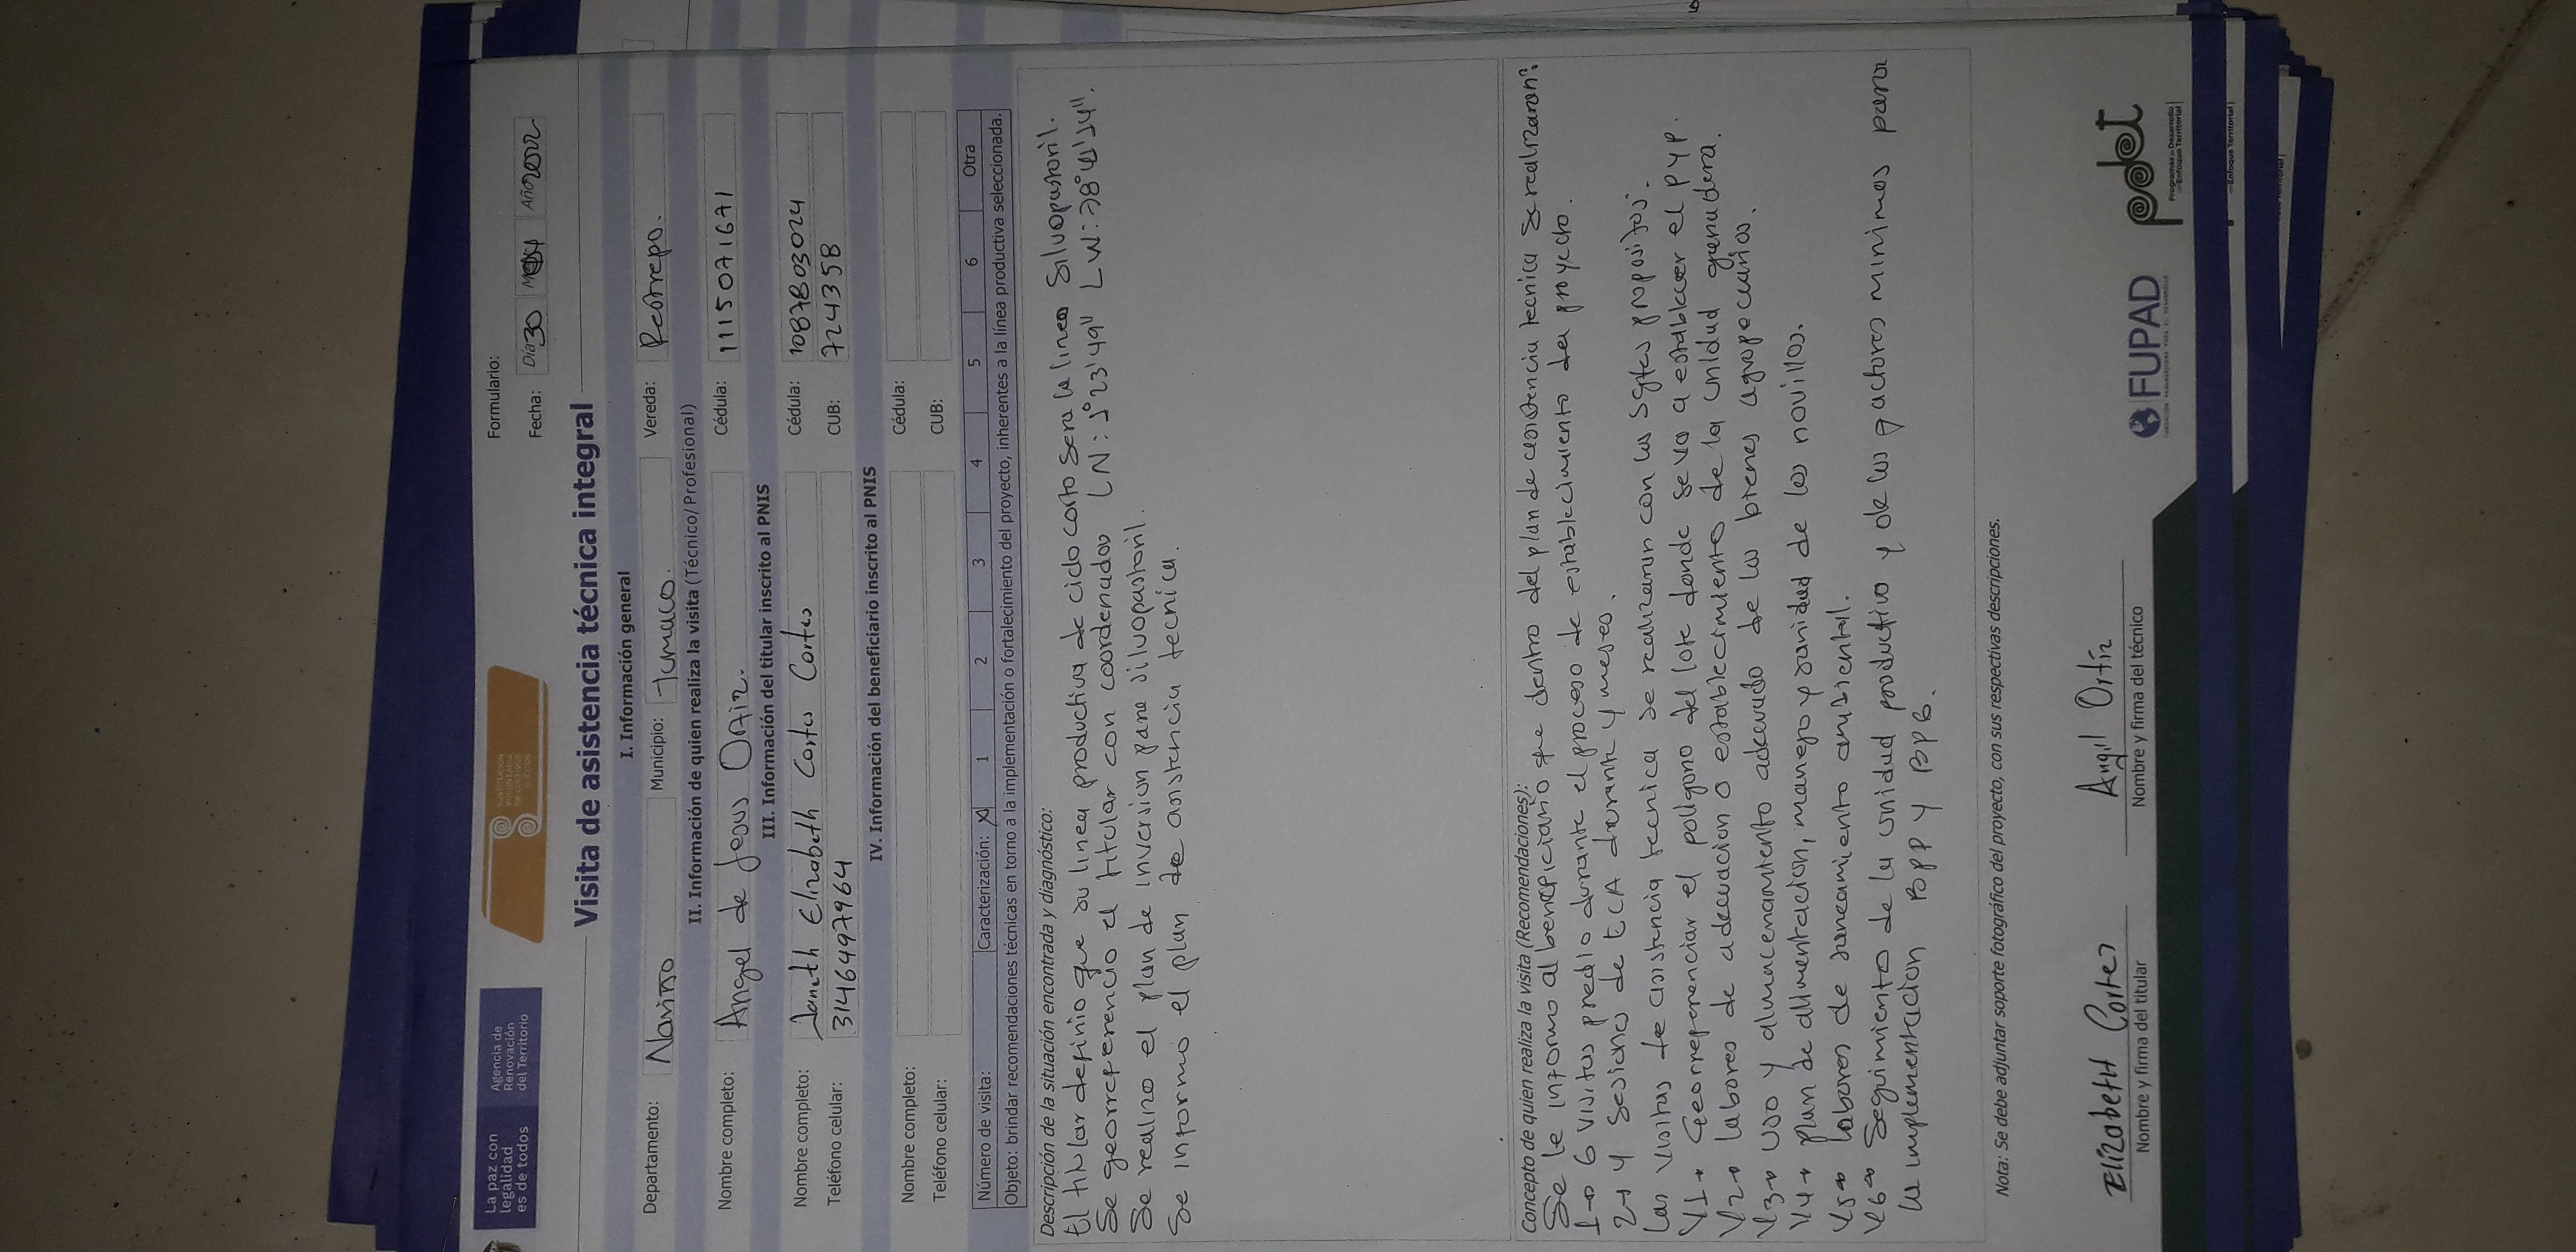 La paz con
legalidad
es de todos
Agencia de
Renovación
del Territorio
SUSTITUCIÓN
VOLUNTARIA
DE CULTIVOS
ILÍCITOS
Formulario:
Fecha: Día 30 Mes Año 2022
Visita de asistencia técnica integral
I. Información general
Departamento: Nariño Municipio: Tumaco. Vereda: Restrepo.
II. Información de quien realiza la visita (Técnico/Profesional)
Nombre completo: Angel de Jesus Ortiz. Cédula: 1115071671
III. Información del titular inscrito al PNIS
Nombre completo: Janeth Elizabeth Cortes Cortes Cédula: 1087803024
Teléfono celular: 3146497964 CUB: 724358
IV. Información del beneficiario inscrito al PNIS
Nombre completo: Cédula:
Teléfono celular: CUB:
Número de visita: Caracterización: X 1 2 3 4 5 6 Otra
Objeto: brindar recomendaciones técnicas en torno a la implementación o fortalecimiento del proyecto, inherentes a la línea productiva seleccionada.
Descripción de la situación encontrada y diagnóstico:
El titular definio que su linea productiva de ciclo corto sera la linea Silvopastoril.
Se georreferencio el titular con coordenadas LN: 1°23'49" LW: 78°41'24".
Se realizo el plan de inversion para silvopastoril.
Se informo el plan de asistencia tecnica.
Concepto de quien realiza la visita (Recomendaciones):
Se le informo al beneficiario que dentro del plan de asistencia tecnica Se realizaran:
1→ 6 visitas predio durante el proceso de establecimiento del proyecto.
2→ 4 sesiones de ECA durante 4 meses.
Las visitas de asistencia tecnica se realizaran con los sgtes propositos.
V1→ Georreferenciar el poligono del lote donde se va a establecer el PYP.
V2→ labores de adecuacion o establecimiento de la unidad ganadera.
V3→ uso y almacenamiento adecuado de los bienes agropecuarios.
V4→ plan de alimentacion, manejo y sanidad de los novillos.
V5→ labores de saneamiento ambiental.
V6→ Seguimiento de la unidad productivo y de los factores minimos para
la implementacion BPP y BPG.
Nota: Se debe adjuntar soporte fotográfico del proyecto, con sus respectivas descripciones.
Elizabeth Cortes
Nombre y firma del titular
Angel Ortiz
Nombre y firma del técnico
FUPAD
pdet
Programas de Desarrollo
con Enfoque Territorial